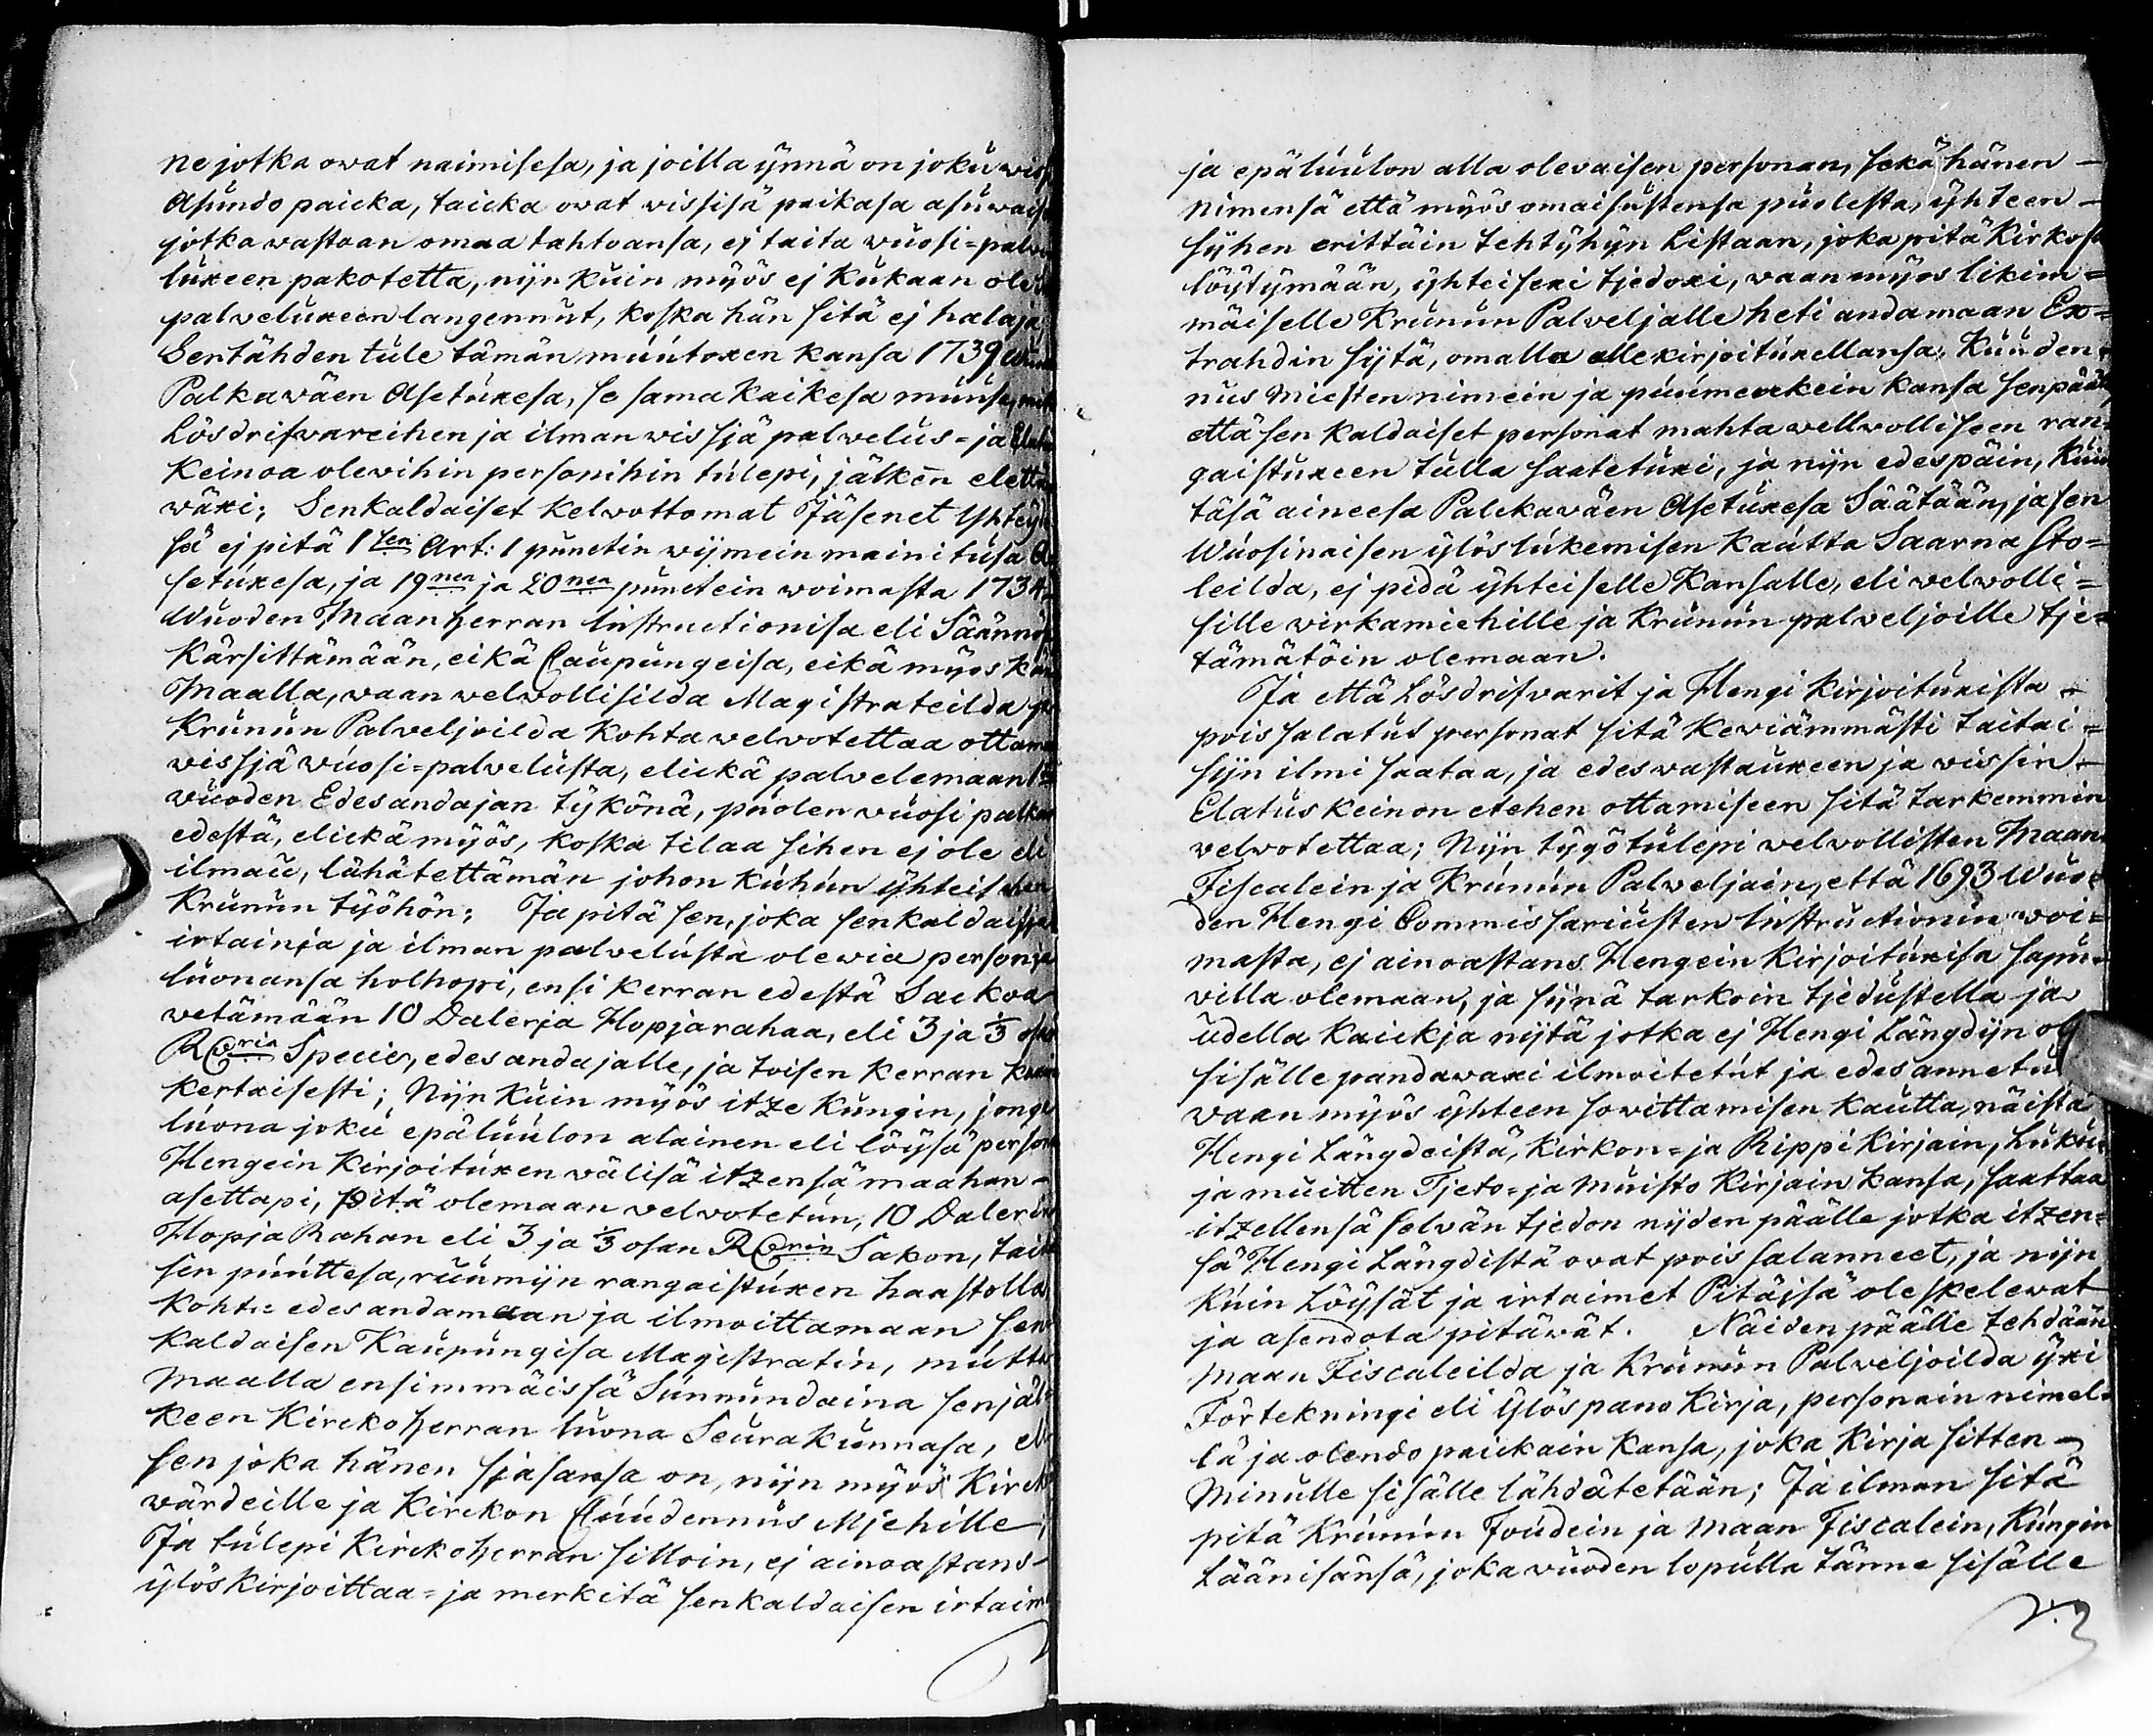 ne jotka owat naimisesa, ja joilla ynnä on joku
Asundo paicka, taicka ovat vissisä paikasa
jotka vastaan omaa tahtoansa, ej taita wuosi=
luxeen pakotetta, nijn kuin myös ej kukaan
palveluxeen langennut, koska hän sitä ej halaja
Sentähden tule tämän muutoxen kansa 1739
Palkawäen Asetuxesa, se sama kaikesa muusa,
Lösdrifvareihin ja ilman wissjä palvelus=ja
Keinoa olevihin personihin tulepi, jälken
wäxi; Senkaldaiset Kelvottomat Jäsenet
sä ej pitä 1sen Art: 1 punctin wijmein mainitusa
setuxesa, ja 19nen ja 20nen punctein woimasta 1734
Wuoden Maanherran Instructionisa eli
Kärsittämään, eikä Caupungeisa, eikä myös
Maalla, waan welvollisilda Magistrateilda
Krunun Palveljoilda Kohta velvotettaa
vissjä vuosi=palvelusta, elickä palvelemaan
wuoden Edesandajan tykönä, puolen vuosi
edestä, elickä myös, koska tilaa sihen ej ole
ilman, lähätettämän johon kuhun
Krunun työhön; Ja pitä sen, joka
irtainia ja ilman palvelusta olewia
luonansa holhopi, ensi kerran edestä Sackoa
vetämään 10 Dalerja Hopjarahaa, eli 3 ja 1/3
Specie, edesandajalle, ja toisen kerran
kertaisesti; Nijn kuin myös itze kungin,
luona joku epäluulon alainen eli löysä
Hengein Kirjoituxen välisä itzensä maahan
asettapi, pitä olemaan velvotetun, 10
Hopja Rahan eli 3 ja 1/3 osan Sakon,
sen puuttesa, ruumijn rangaistuxen haastolla
kohta edesandamaan ja ilmoittamaan sen
kaldaisen Kaupungisa Magistratin, mutta
maalla ensimmäissä Sunnundaina senjäl=
keen Kirckoherran luona Seurakunnasa,
sen joka hänen sjasansa on, nijn myös
värdeille ja Kirckon Cuudennus Mjehille;
Ja tulepi Kirckoherran silloin, ej ainoastans
ylöskirjoittaa=ja merkitä senkaldaisen
ja epäluulon alla olevaisen personan, sekä hänen
nimensä että myös omaisustensa puolesta, yhteen
syhen erittäin tehtyhyn Listaan, joka pitä Kirkosa
löytymään, yhteisexi tjedoxi, waan myös likim=
mäiselle Krunun Palveljalle heti andamaan Ex=
trahdin sijtä, omalla allekirjoituxellansa, Kuuden
nus Miesten nimein ja puumerckein kansa senpäälle
että sen kaldaiset personat mahta wellvolliseen ran
gaistuxeen tulla saatetuxi, ja nijn edespäin, Kuin
täsä aineesa Palckaväen Asetuxesa Säätään, ja sen
Wuosinaisen ylöslukemisen kautta Saarna Sto=
leilda, ej pidä yhteiselle Kansalle, eli velvolli=
sille virkamiehille ja Krunun palveljoille tje=
tämätöin olemaan.
Ja että Lösdrifvarit ja Hengi kirjoituxista
poissalatut personat sitä keviämmästi taitai=
sijn ilmi saataa, ja edesvastauxeen ja vissin
Elatus keinon etehen ottamiseen sitä tarkemmin
velvotettaa; Nijn työtulepi velvollisten Maan
Fiscalein ja Krunun Palveljain, että 1693 Wuo=
den Hengi Commissariusten Instructionin woi=
masta, ej ainoastans Hengein kirjoituxisa sapu
villa olemaan, ja sijnä tarkoin tjedustella ja
udella kaickja nijtä jotka ej Hengi Längdijn
sisälle pandavaxi ilmoitetut ja edesannetu
vaan myös yhteen sovittamisen kautta, näistä
Hengi Längdeistä, Kirkon=ja Rippi kirjain, Luku
ja muitten Tjeto=ja Muisto Kirjain kansa, saattaa
itzellensä selvän tjedon nijden päälle jotka itzen=
sä Hengi Längdistä ovat pois salanneet, ja nijn
kuin Löysät ja irtaimet Pitäjsä oleskelevat
ja asendota pitävät. Näiden päälle tehdään
Maan Fiscaleilda ja Krunun Palveljoilda yxi
Förtekningi eli ylöspano kirja, personain nimel=
lä ja olendo paickain kansa, joka kirja sitten
Minulle sisälle lähdätetään; Ja ilman sitä
pitä Krunun Foudein ja Maan Fiscalein, Kungin
Läänisänsä, joka vuoden lopulla tänne sisälle